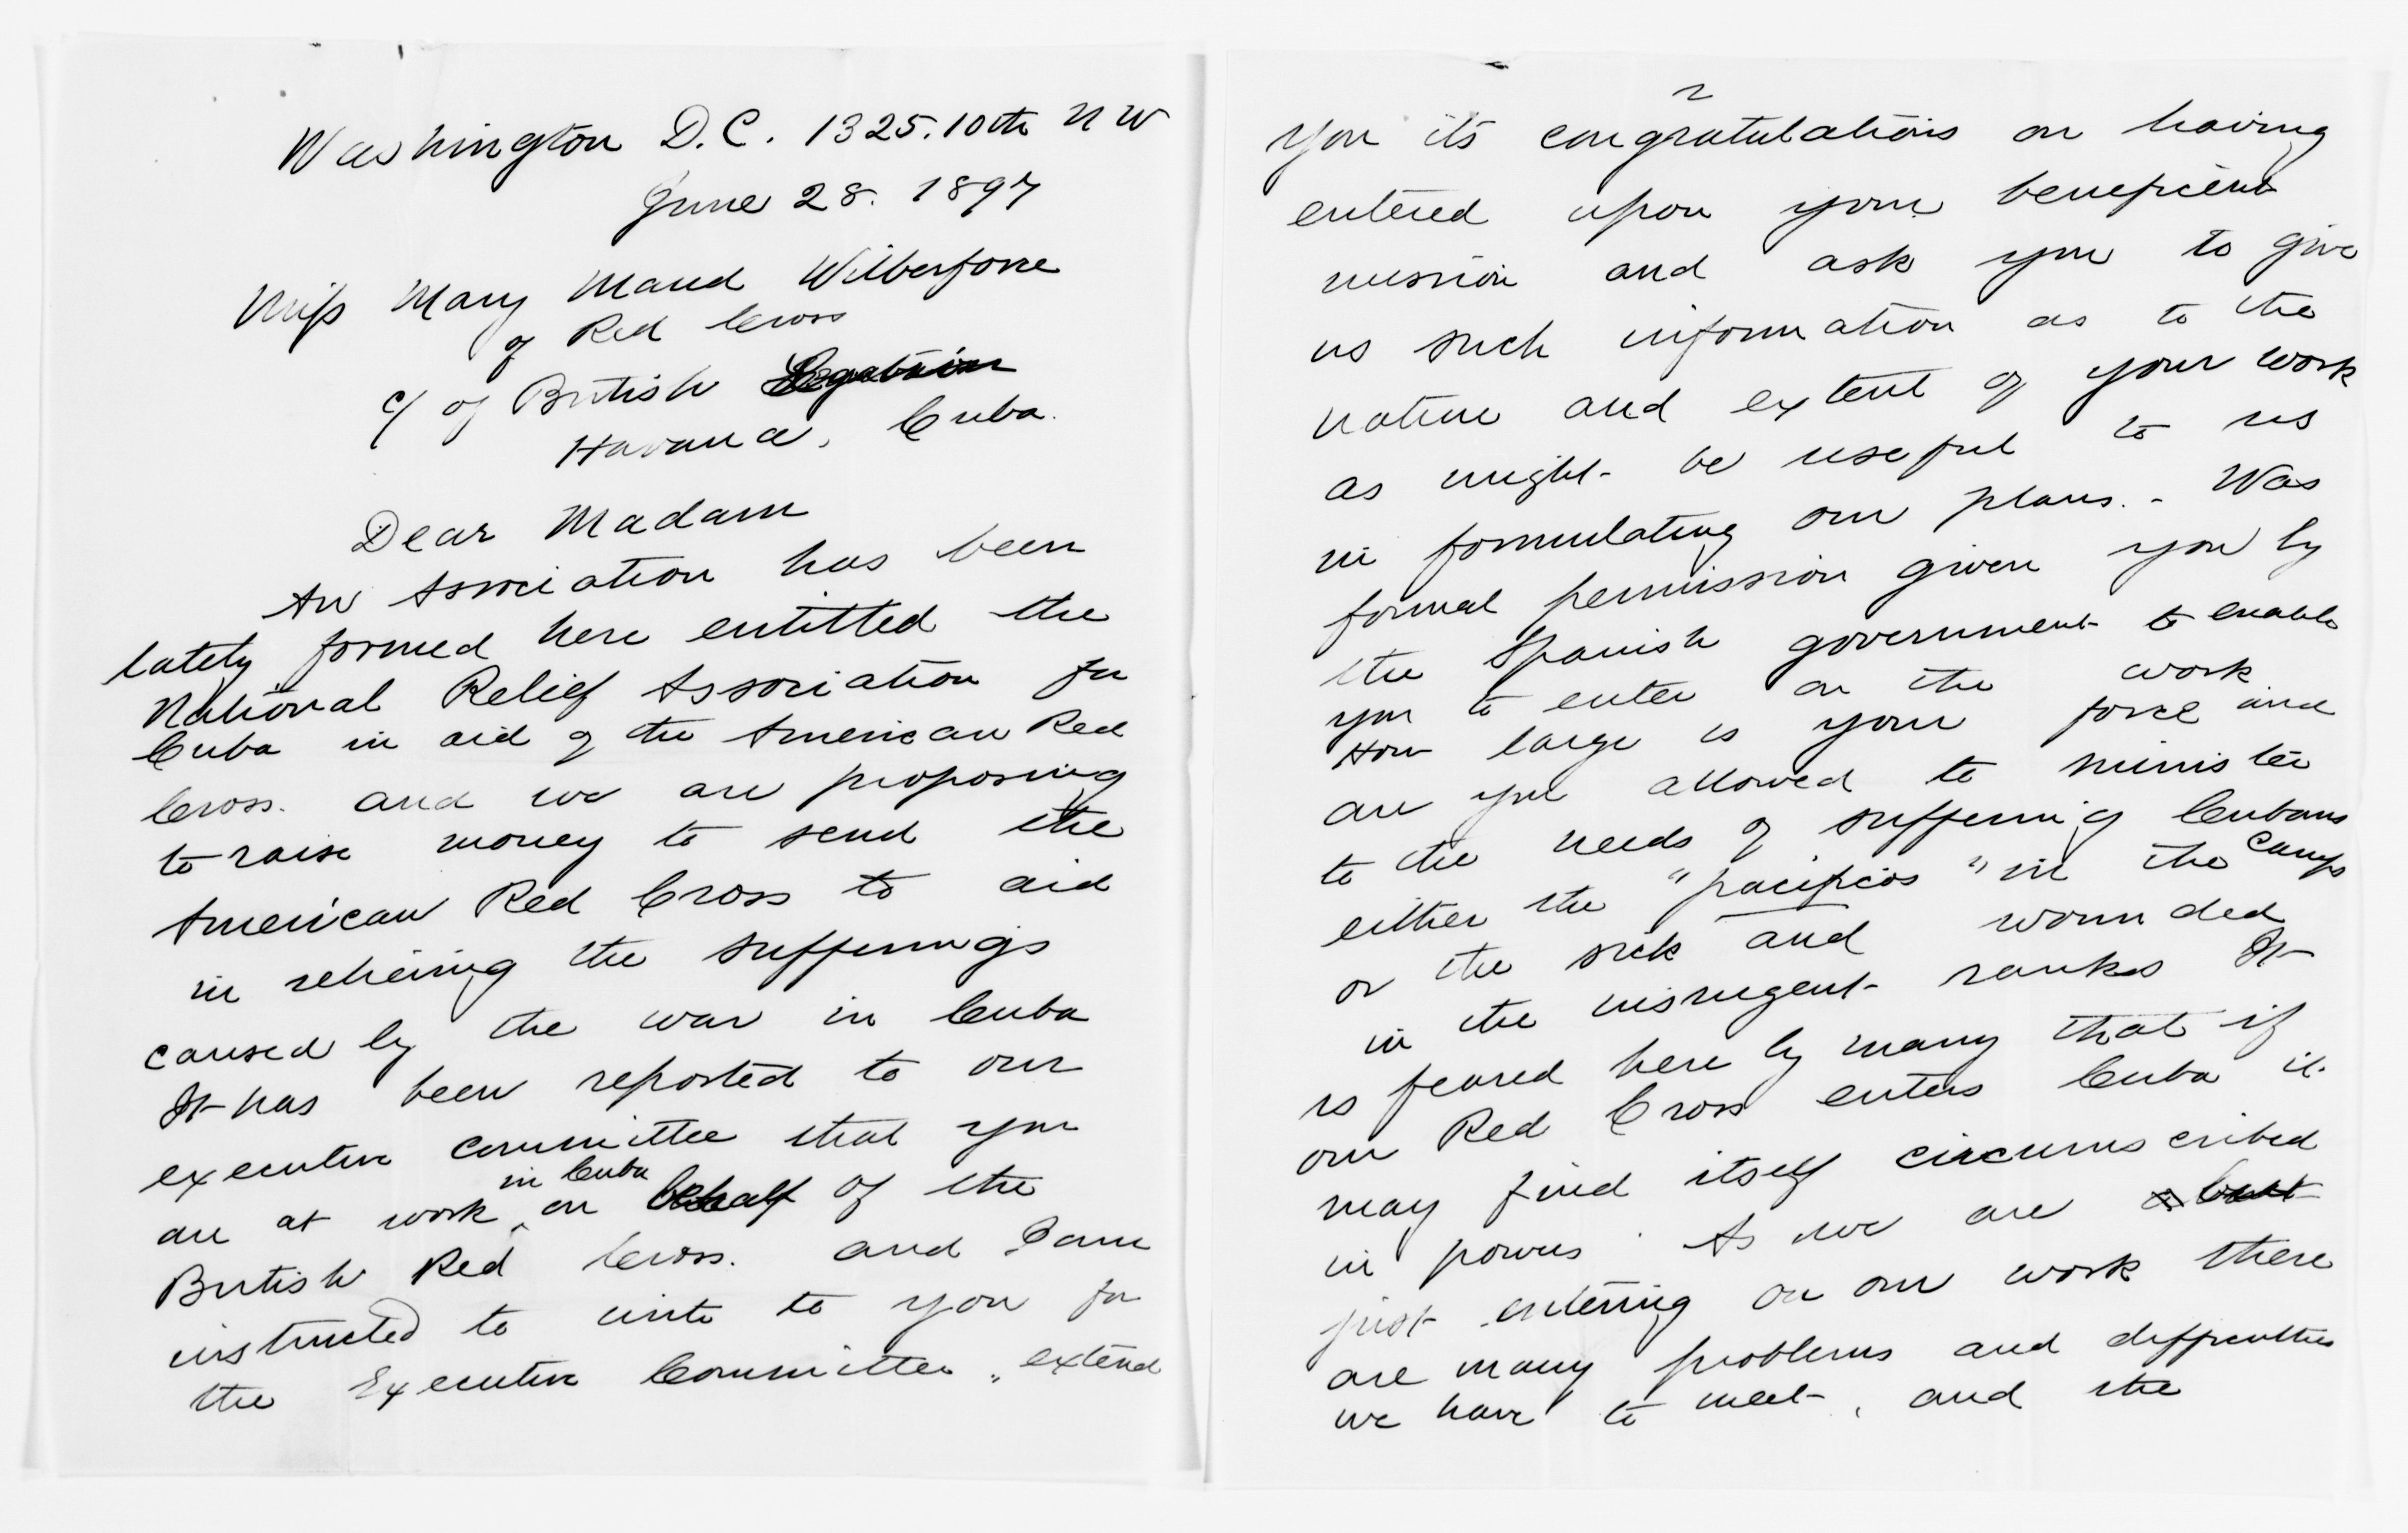 Washington D.C. 1325. 10th N W
June 28. 1897
Miss Mary Maud Wilberforce
of Red Cross
c/ of British Legation
Havana, Cuba.
Dear Madam
An Association has been
lately formed here entitled the
National Relief Association for
Cuba in aid of the American Red
Cross. and we are proposing
to raise money to send the
American Red Cross to aid
in relieving the sufferings
caused by the war in Cuba
It has been reported to our
executive committee that you
in Cuba
are at work on behalf of the
British Red Cross. and I am
instructed to write to you for
the Executive Committee, extend
2
you its congratulations on having
entered upon your beneficent
mission and ask you to give
us such information as to the
nature and extent of your work
as might be useful to us
in formulating our plans. - Was
formal permission given you by
the Spanish government to enable
you to enter on the work
How large is your force and
are you allowed to minister
to the needs of suffering Cubans
either the "pacificos" in the camps
or the sick and wounded
in the insurgent ranks It
is feared here by many that if
our Red Cross enters Cuba it
may find itself circumscribed
in powers. As we are about
just entering on our work there
are many problems and difficulties
we have to meet, and the